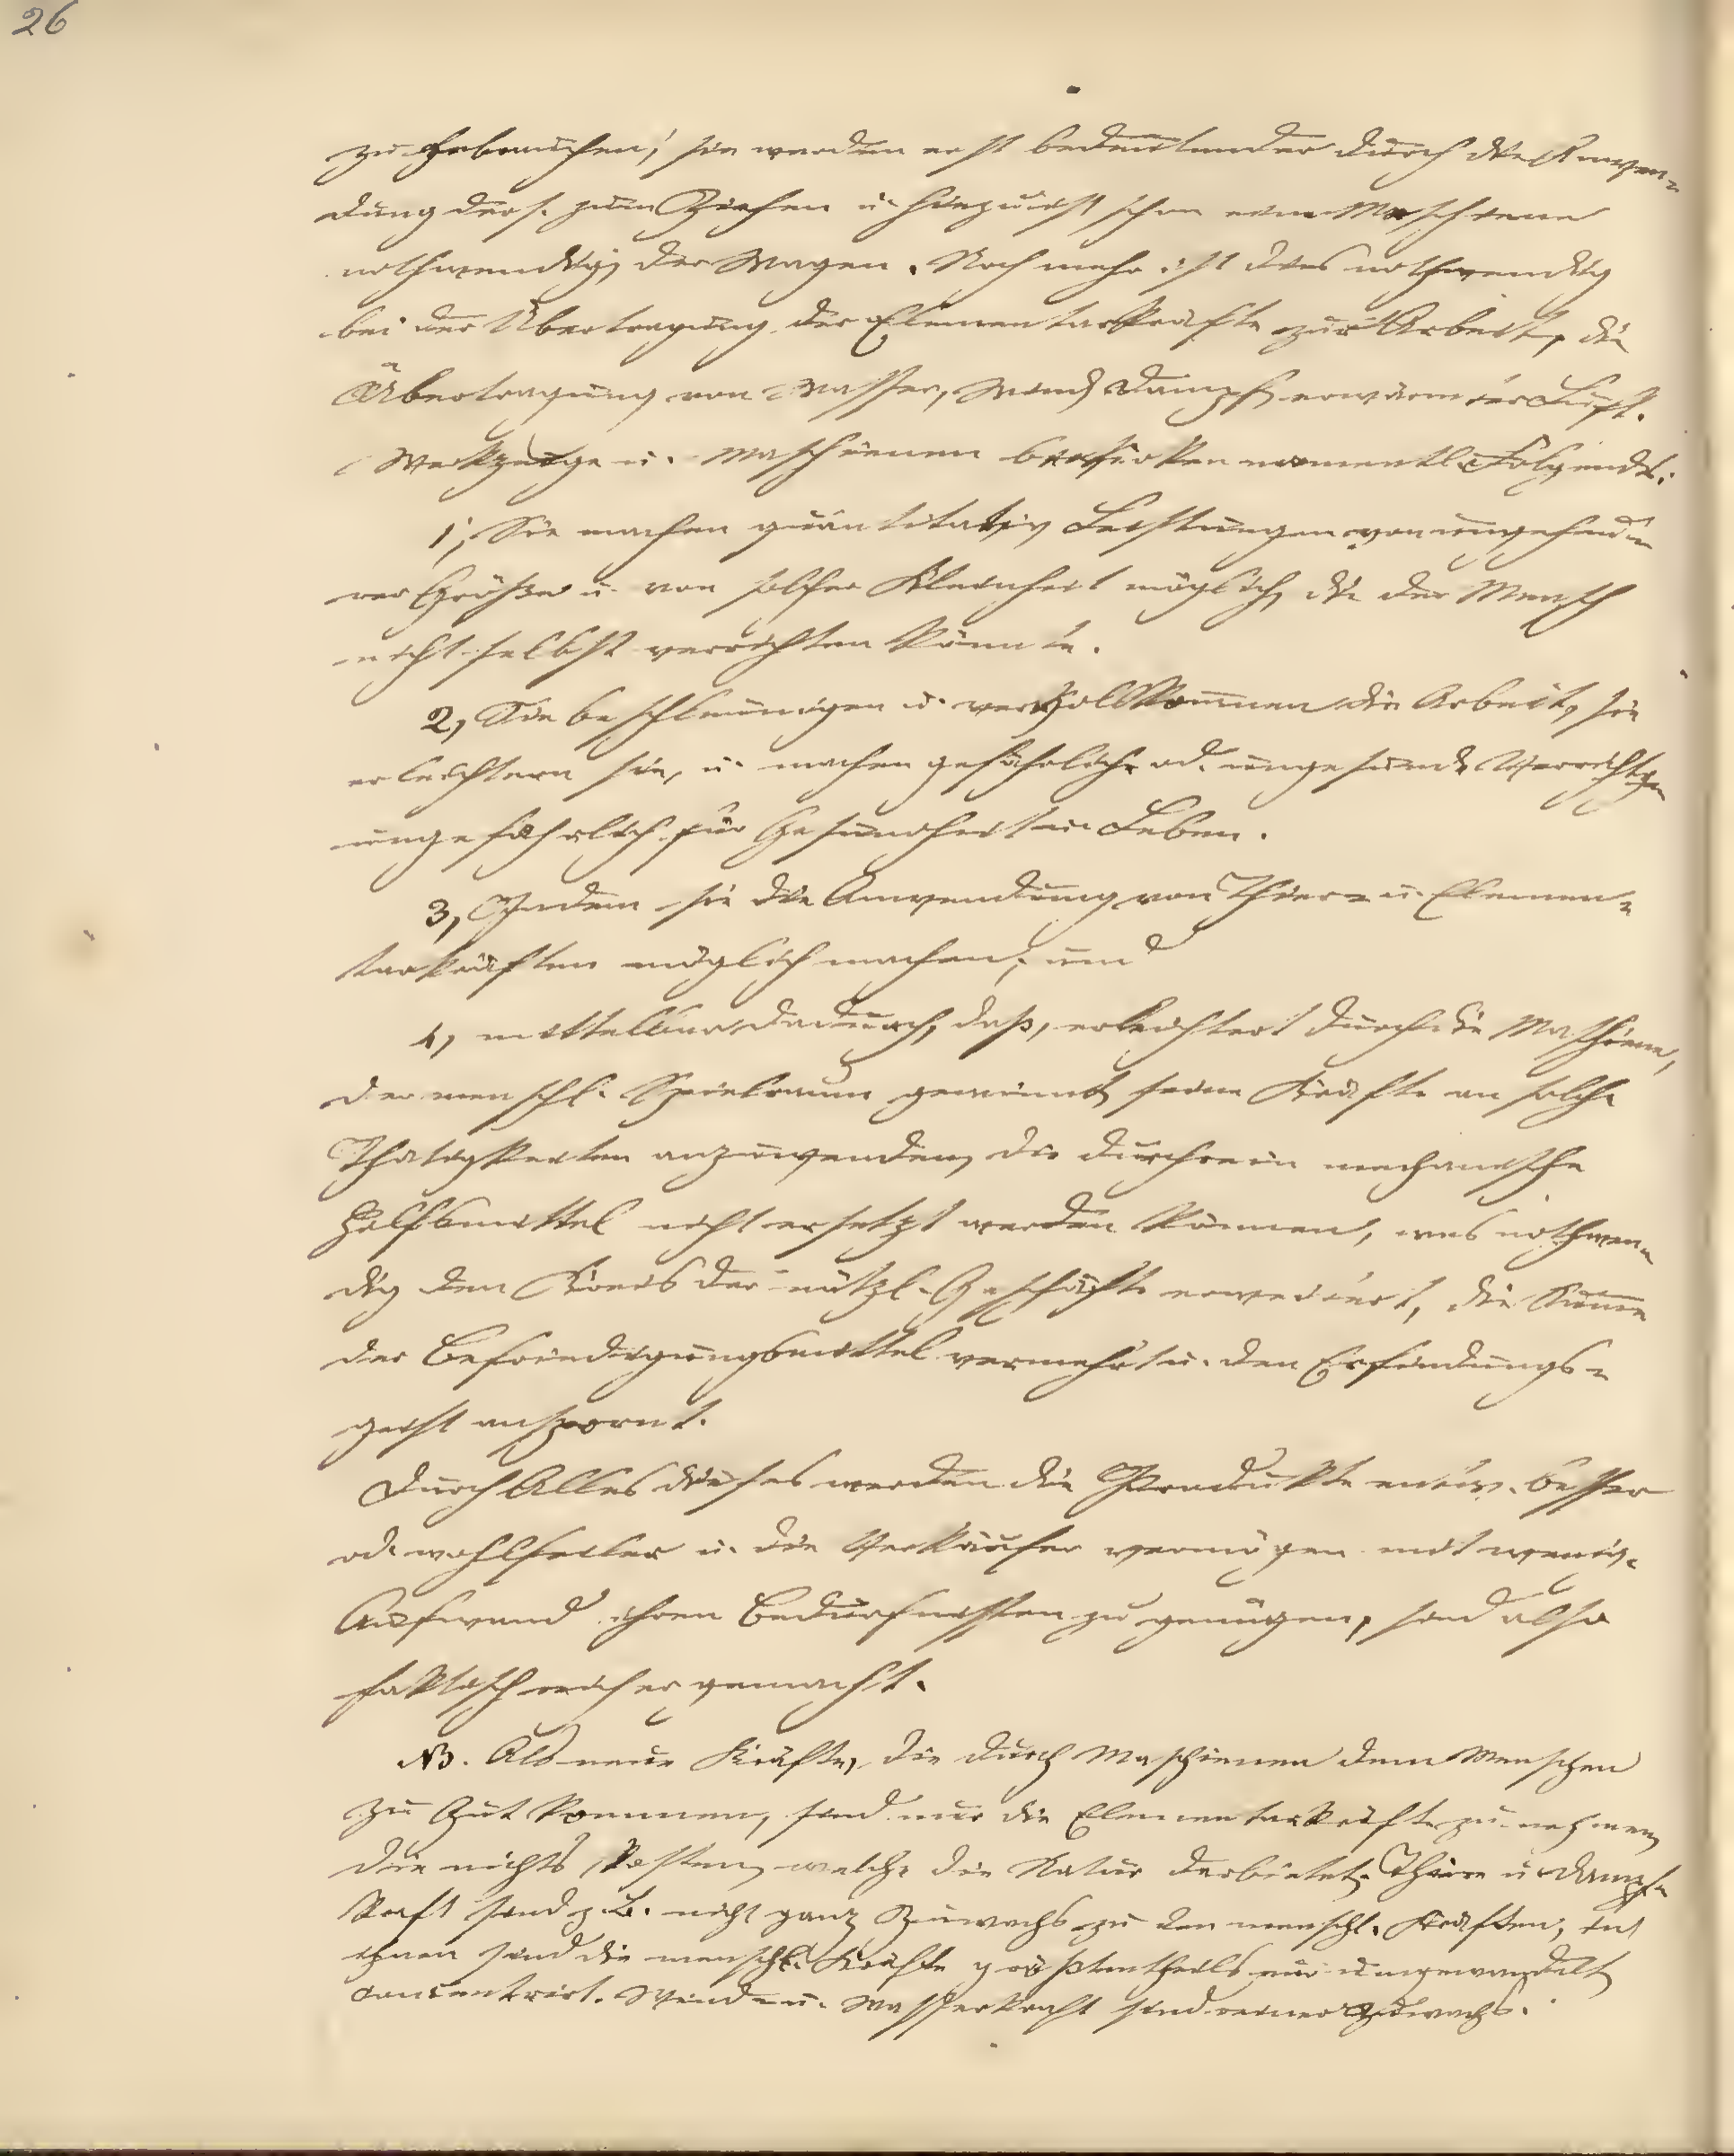 26
zu gebrauchen; sie werden erst bedeutender durch die Anwen-
dung ders. zum Ziehen u. hiezu ist schon eine Maschiene
nothwendig, der Wagen. Noch mehr ist dies nothwendig
bei der Übertragung der Elementarkräfte zur Arbeit, die
Übertragung von Wasser, Wind, Dampf, erwärmter Luft.
Werkzeuge u. Maschienen bewirken namentl. Folgendes:
1, Sie machen quantitativ Leistungen von ungeheue-
rer Größe u. von solcher Kleinheit möglich, die der Mensch
nicht selbst verrichten könnte.
2, Sie beschleunigen u. vervollkommnen die Arbeit, sie
erleichtern sie, u. machen gefährliche od. ungesunde Verrichtgn
ungefährlich für Gesundheit u. Leben.
3, Indem sie die Anwendung von Thier- u. Elemen-
tarkräften möglich machen; und
4, mittelbar dadurch, daß, erleichtert durch die Maschiene,
der menschl. Spielraum gewinnt, seine Kräfte an solche
Thätigkeiten anzuwenden, die durch ein mechanische
Hilfsmittel nicht ersetzt werden können, was nothwen-
dig den Kreis der nützl. Geschäfte erweitert, die Summe
der Befriedigungsmittel vermehrt u. den Erfindungs-
geist anspornt.
Durch Alles dieses werden die Produkte entw. besser
od. wohlfeiler u. die Verkäufer vermögen mit wenig.
Aufwand ihren Bedürfnissen zu genügen, sind also
faktisch reicher gemacht.
NB. Als neue Kräfte, die durch Maschienen dem Menschen
zu Gut kommen, sind nur die Elementarkräfte zu nehmen,
die nichts kosten, welche die Natur darbietet. Thier u. Dampf-
kraft sind z. B. nicht ganz Zuwachs zu den menschl. Kräften; in
ihnen sind die menschl. Kräfte größtentheils nur umgewandelt,
concentrirt. Wind- u. Wasserkraft sind reiner Zuwachs.